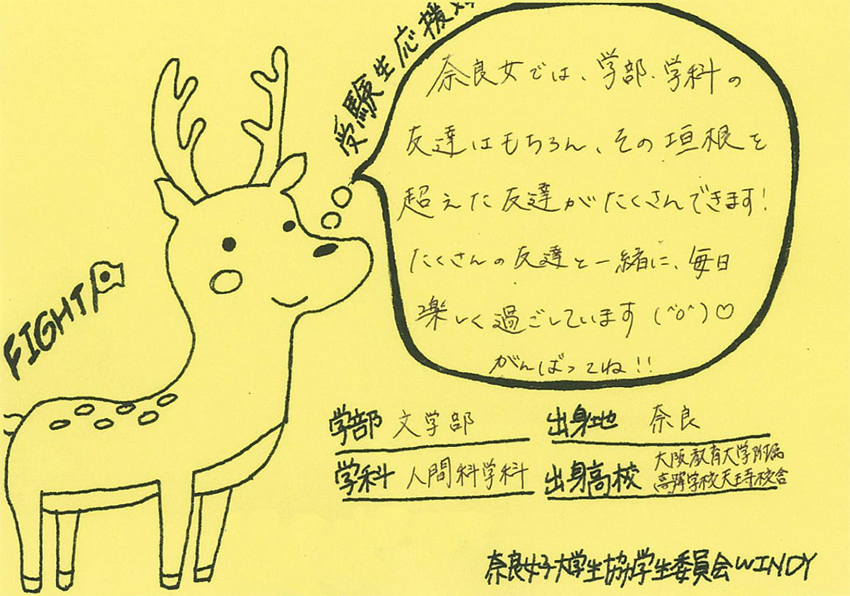 受験生応援
奈良女では、学部・学科の
友達はもちろん、その垣根を
超えた友達がたくさんできます！
たくさんの友達と一緒に、毎日
楽しく過ごしています(^o^)♡
がんばってね！！
FIGHT
学部 文学部
出身地 奈良
学科 人間科学科
出身高校 大阪教育大学附属
高等学校天王寺校舎
奈良女子大学生協学生委員会WINDY